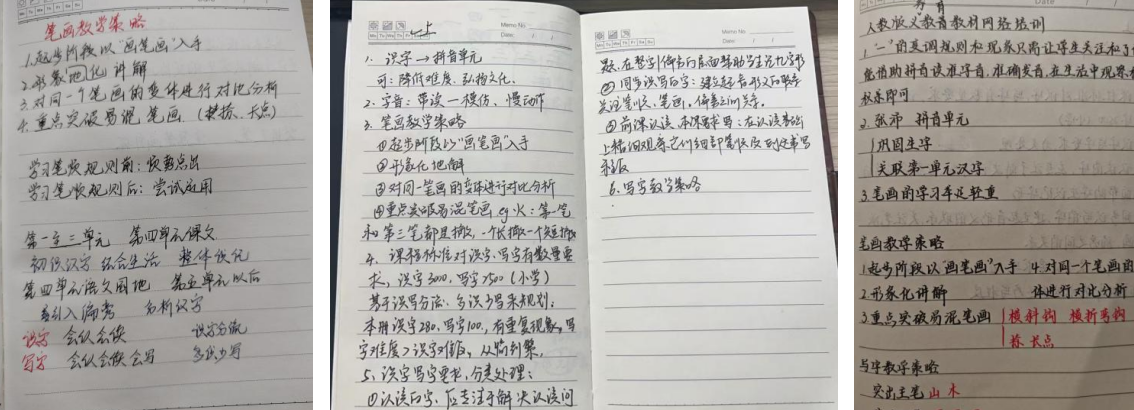 笔画教学策略
1.起步阶段以"画笔画"入手
2.形象地化讲解
3.对同一个笔画的变体进行对比分析
4.重点突破易混笔画（横捺、长点）
学习笔顺规则前：顺势点出
学习笔顺规则后：尝试应用
第一至三单元 第四单元课文
初识汉字 结合生活 整体认记
第四单元语文园地 第五单元以后
引入偏旁 分析汉字
识字 会认会读 识字分流
写字 会认会读会写 多认少写
一上
Memo No.
Mo Tu We Th Fr Sa Su
Date / /
1. 识字→拼音单元
可：降低难度、弘扬文化。
2. 字音：带读—模仿、慢动作
3. 笔画教学策略
①起步阶段以"画笔画"入手
②形象化地解
③对同一笔画的变体进行对比分析
④重点突破易混笔画 eg 火：第一笔
和第三笔都是撇，一个长撇一个短撇
4. 课程标准对识字、写字有数量要
求，识字3000，写字2500（小学）
基于识写分流、多认少写来规划：
本册识字280，写字100，有重复现象，写
字难度>识字难度，从简到繁。
5. 识字写字要求，分类处理：
①认读的字，应专注于解决认读问
Memo No.
Mo Tu We Th Fr Sa Su
Date / /
题，在整字、偏旁的层面帮助学生记忆字形
②同步识写的字：建立起音形义的联系
关注笔顺、笔画、偏旁之间关系。
③前课认读，本课要求写：在认读基础
上精细观察它们细部
6. 写字教学策略
教育
人教版义教育教材网络培训
1."一"的变调规则和现象只需让学生关注和
能借助拼音读准字音，准确发音，在生活中现
积累即可
2. 张沛 拼音单元
巩固生字
关联第一单元汉字
3.笔画的学习车足轻重
笔画教学策略
1.起步阶段以"画笔画"入手 4.对同一个笔画的
2.形象化讲解 体进行对比分析
3.重点突破易混笔画 横斜钩 横折弯钩
捺、长点
写字教学策略
突出主笔 山 木